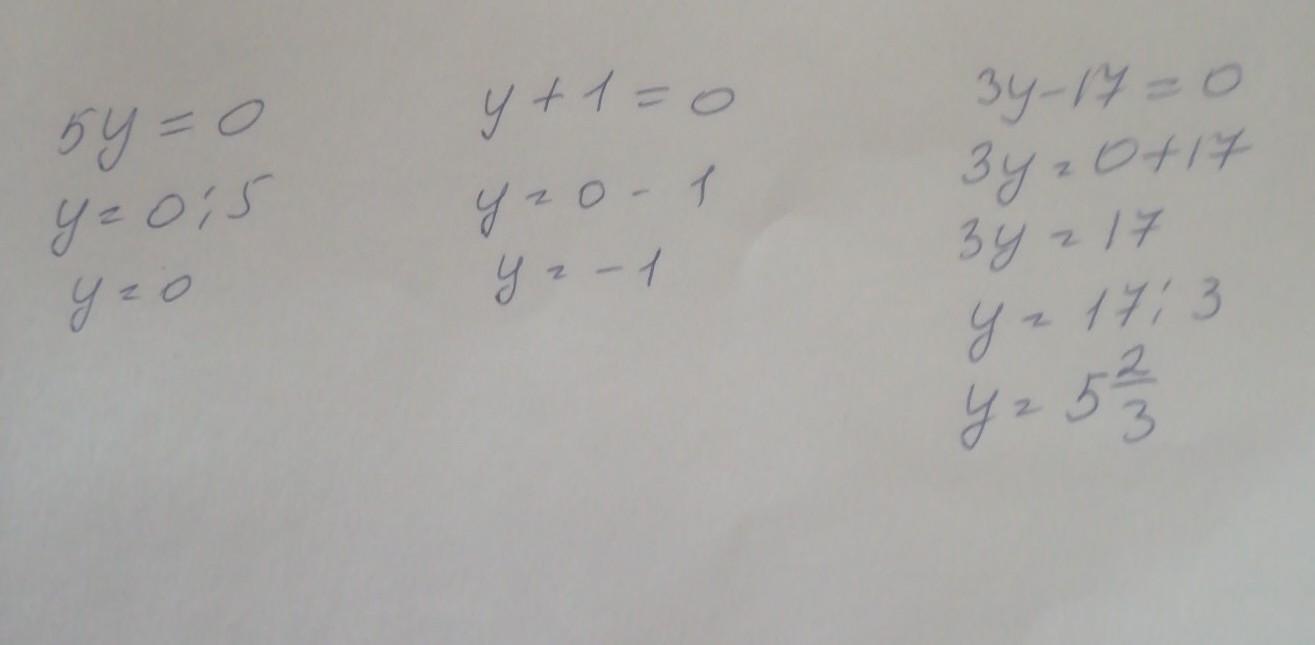 5y = 0
y = 0 : 5
y = 0
y + 1 = 0
y = 0 - 1
y = -1
3y - 17 = 0
3y = 0 + 17
3y = 17
y = 17 : 3
y = 5 2/3